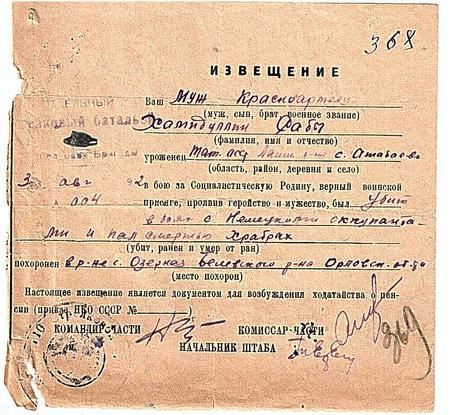 368
ИЗВЕЩЕНИЕ
Ваш Муж Красноармеец
(муж, сын, брат, военное звание)
Хамидуллин
(фамилия, имя и отчество)
уроженец Тат. с. Атабаево
(область, район, деревня и село)
3 авг 42 в бою за Социалистическую Родину, верный воинской
№ 004 присяге, проявив геройство и мужество, был убит
в боях с Немецкими оккупанта-
ми и пал смертью храбрых
(убит, ранен и умер от ран)
похоронен в р-не с. Озерная Белевского р-на Орловск. обл.
(место похорон)
Настоящее извещение является документом для возбуждения ходатайства о пен-
сии (приказ НКО СССР №
КОМАНДИР ЧАСТИ КОМИССАР ЧАСТИ
НАЧАЛЬНИК ШТАБА
369